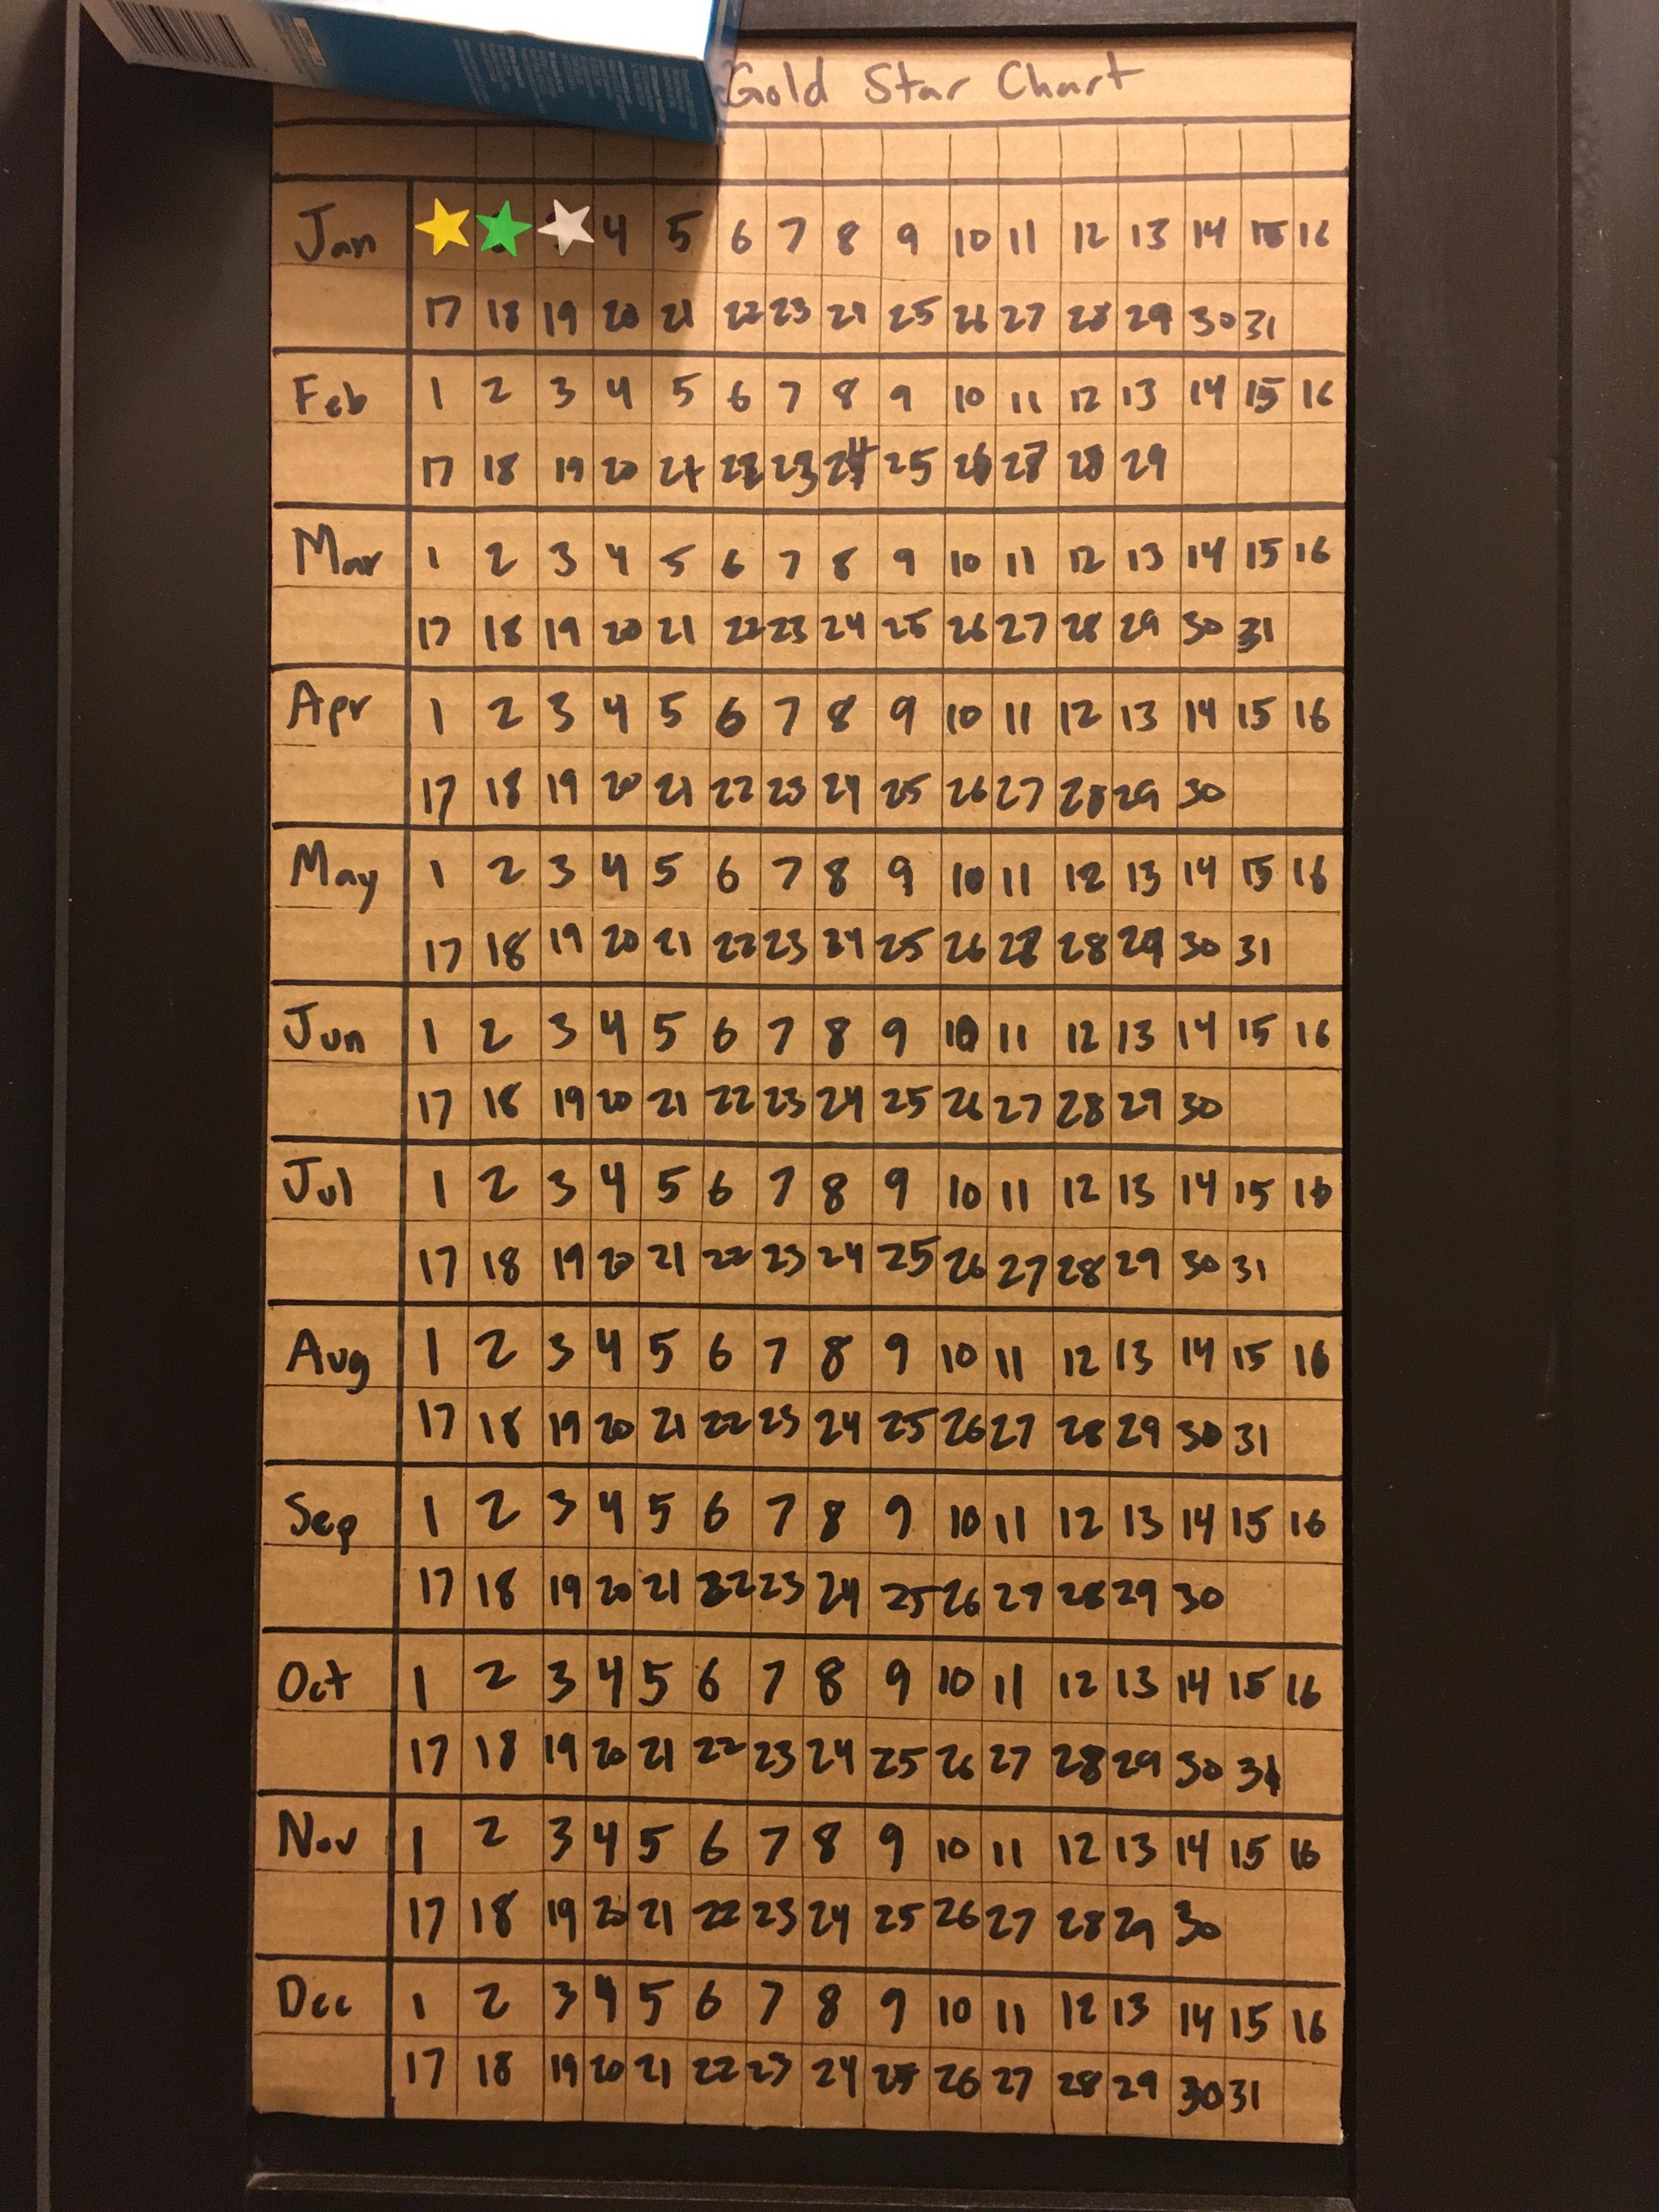 Gold Star Chart
Jan 4 5 6 7 8 9 10 11 12 13 14 15 16
17 18 19 20 21 22 23 24 25 26 27 28 29 30 31
Feb 1 2 3 4 5 6 7 8 9 10 11 12 13 14 15 16
17 18 19 20 21 22 23 24 25 26 27 28 29
Mar 1 2 3 4 5 6 7 8 9 10 11 12 13 14 15 16
17 18 19 20 21 22 23 24 25 26 27 28 29 30 31
Apr 1 2 3 4 5 6 7 8 9 10 11 12 13 14 15 16
17 18 19 20 21 22 23 24 25 26 27 28 29 30
May 1 2 3 4 5 6 7 8 9 10 11 12 13 14 15 16
17 18 19 20 21 22 23 24 25 26 27 28 29 30 31
Jun 1 2 3 4 5 6 7 8 9 10 11 12 13 14 15 16
17 18 19 20 21 22 23 24 25 26 27 28 29 30
Jul 1 2 3 4 5 6 7 8 9 10 11 12 13 14 15 16
17 18 19 20 21 22 23 24 25 26 27 28 29 30 31
Aug 1 2 3 4 5 6 7 8 9 10 11 12 13 14 15 16
17 18 19 20 21 22 23 24 25 26 27 28 29 30 31
Sep 1 2 3 4 5 6 7 8 9 10 11 12 13 14 15 16
17 18 19 20 21 22 23 24 25 26 27 28 29 30
Oct 1 2 3 4 5 6 7 8 9 10 11 12 13 14 15 16
17 18 19 20 21 22 23 24 25 26 27 28 29 30 31
Nov 1 2 3 4 5 6 7 8 9 10 11 12 13 14 15 16
17 18 19 20 21 22 23 24 25 26 27 28 29 30
Dec 1 2 3 4 5 6 7 8 9 10 11 12 13 14 15 16
17 18 19 20 21 22 23 24 25 26 27 28 29 30 31